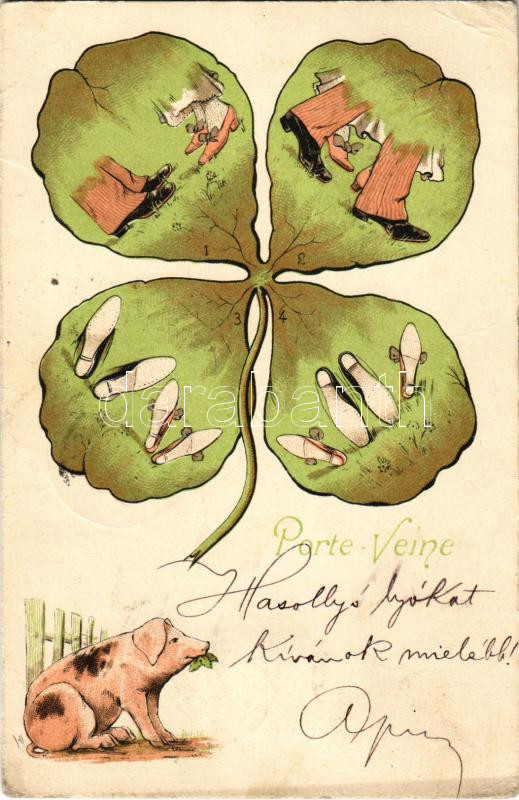 1 2
3 4
darabanth
Porte-Veine
Hasollyó lyókat
kívánok mielébb!